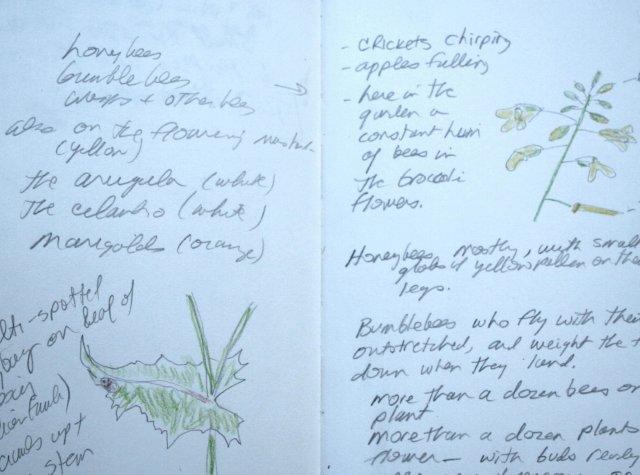 honeybees
bumblebees
wasps + other bees
also on the flowering mustard
(yellow)
the arugula (white)
The cilantro (white)
Marigolds (orange)
multi-spotted
bug on
stem
- CRICKETS chirping
- apples falling
- here in the
garden a
constant hum
of bees in
the broccoli
flowers.
Honeybees mostly, with small
globs of yellow pollen on their
legs.
Bumblebees who fly with their
outstretched, and weight the
down when they land.
more than a dozen bees on
plant
more than a dozen plants
flower - with buds